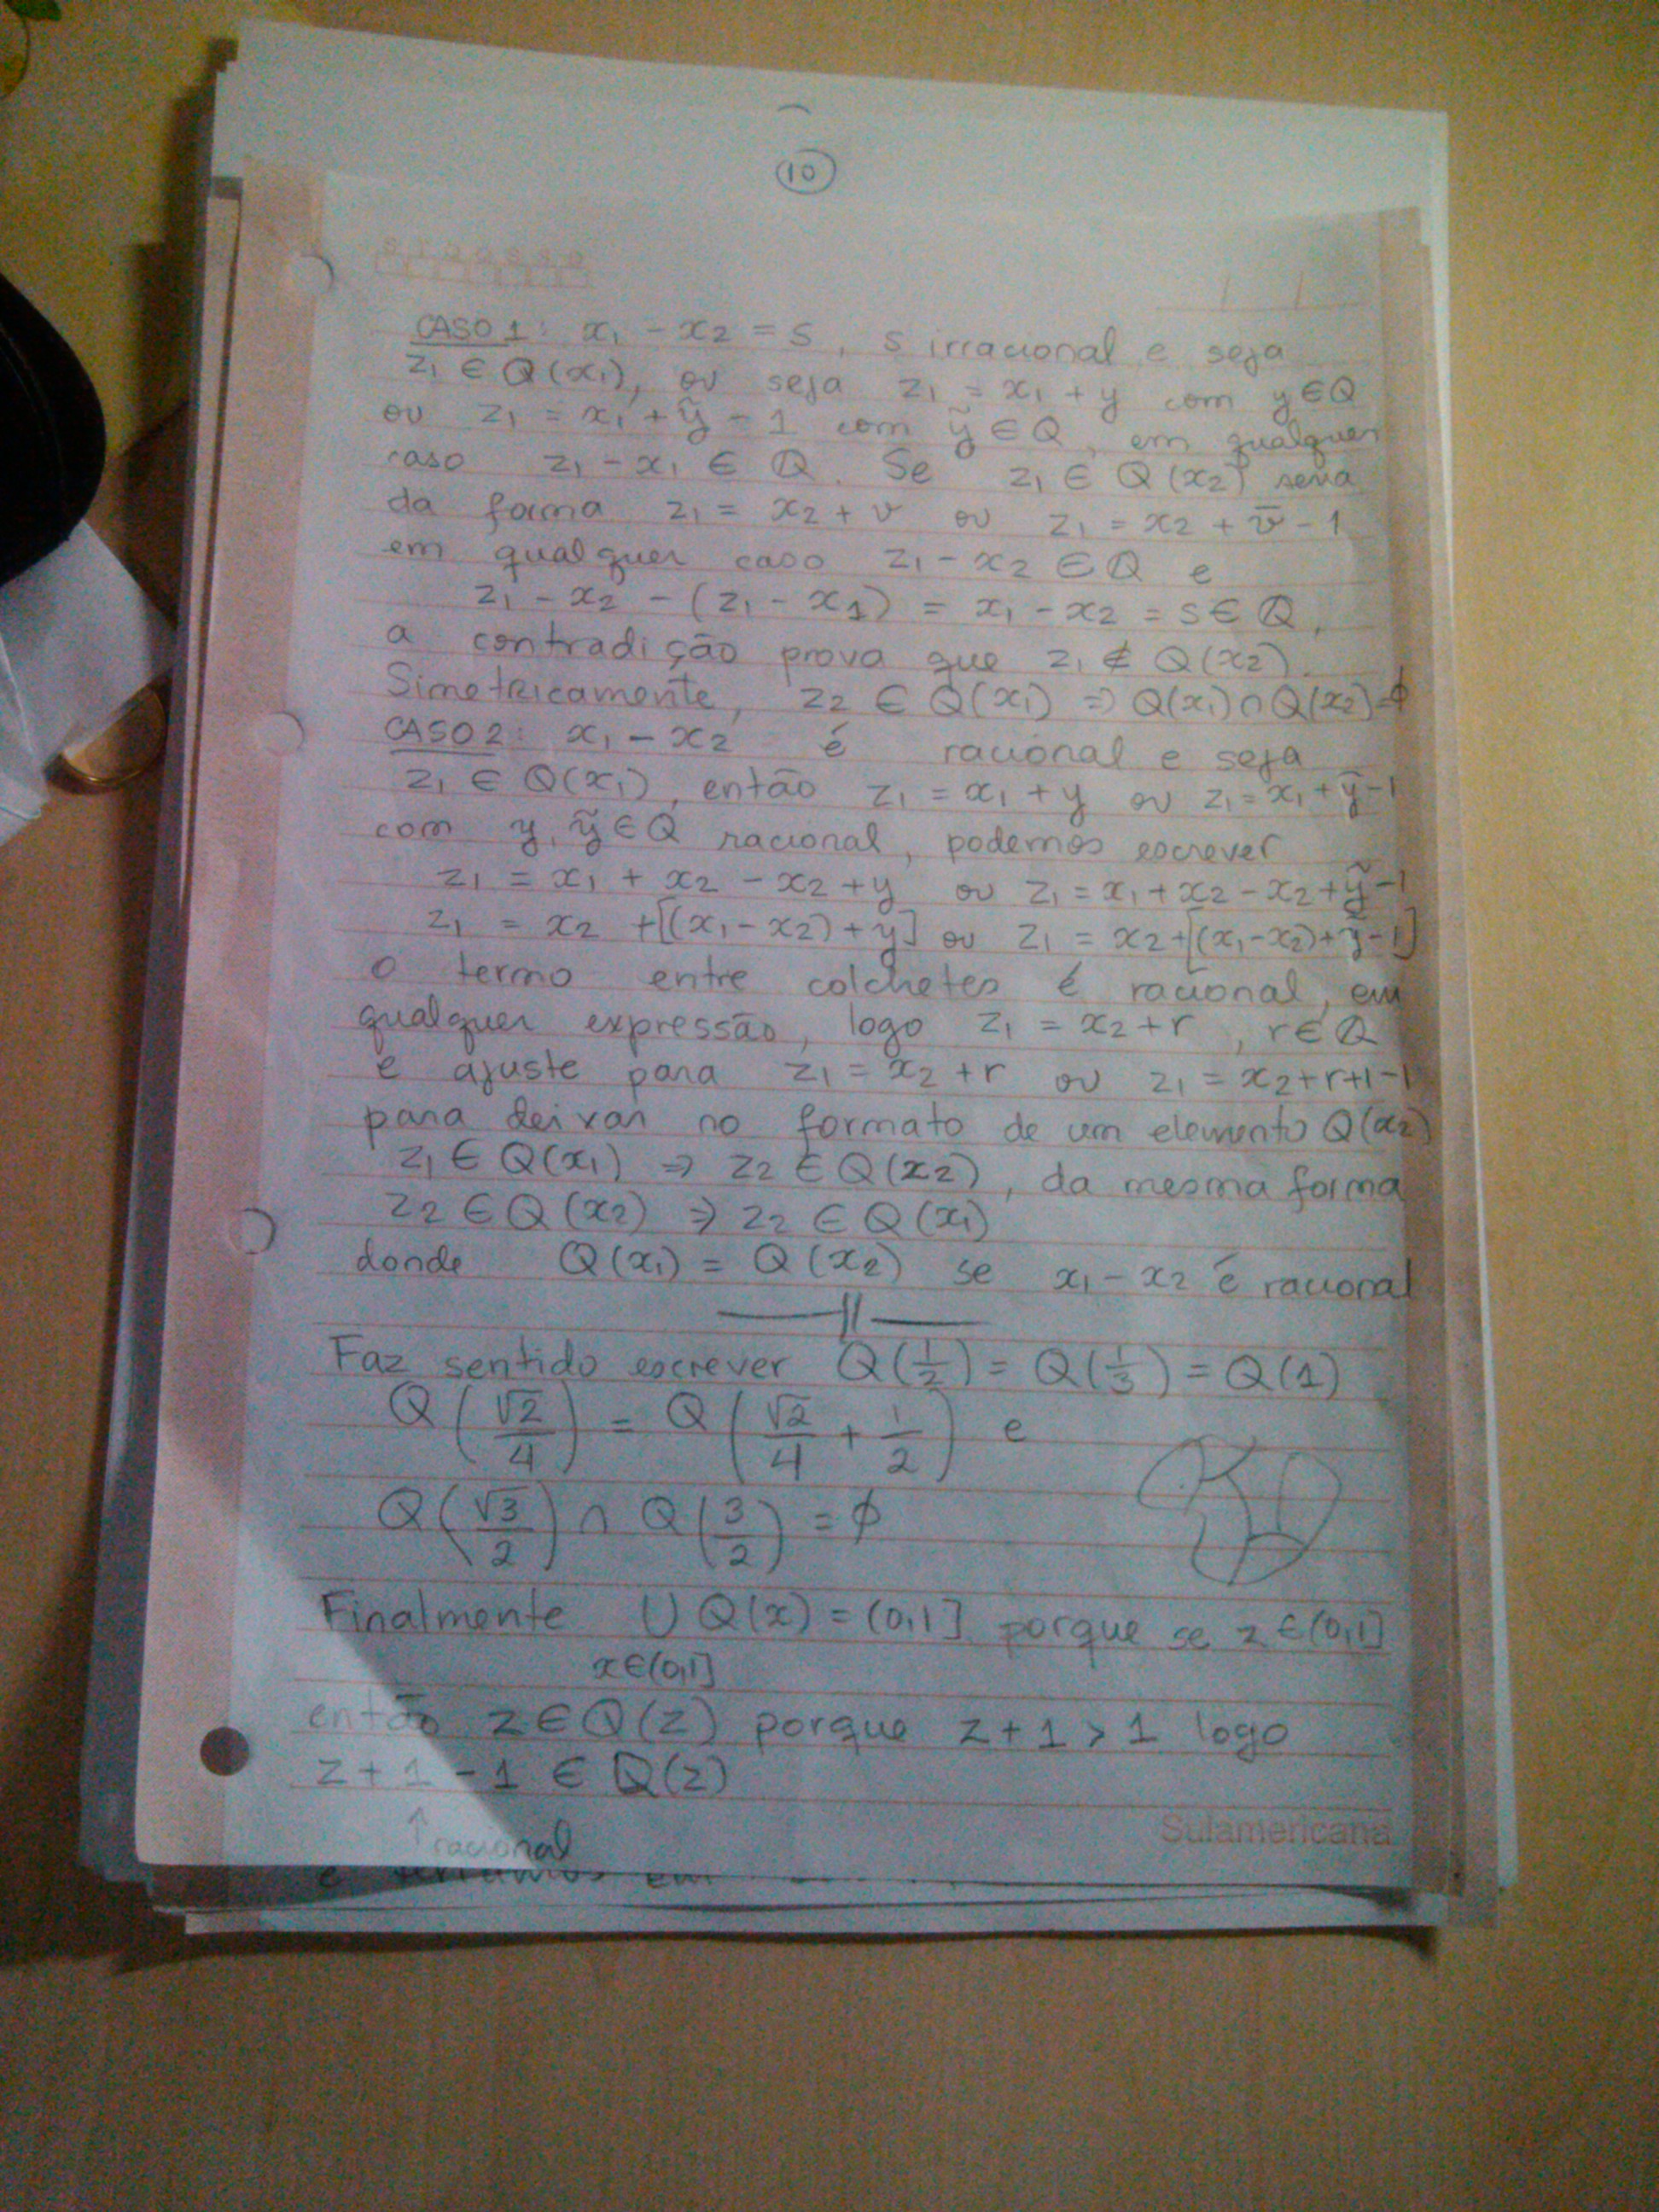 10
CASO 1: x₁ - x₂ = s, s irracional e seja
z₁ ∈ Q(x₁), ou seja z₁ = x₁ + y com y ∈ Q
ou z₁ = x₁ + ỹ - 1 com ỹ ∈ Q, em qualquer
caso z₁ - x₁ ∈ Q. Se z₁ ∈ Q(x₂) seria
da forma z₁ = x₂ + v ou z₁ = x₂ + v̄ - 1
em qualquer caso z₁ - x₂ ∈ Q e
z₁ - x₂ - (z₁ - x₁) = x₁ - x₂ = s ∈ Q,
a contradição prova que z₁ ∉ Q(x₂).
Simetricamente, z₂ ∈ Q(x₁) ⇒ Q(x₁) ∩ Q(x₂) = ϕ
CASO 2: x₁ - x₂ é racional e seja
z₁ ∈ Q(x₁), então z₁ = x₁ + y ou z₁ = x₁ + ỹ - 1
com y, ỹ ∈ Q racional, podemos escrever
z₁ = x₁ + x₂ - x₂ + y ou z₁ = x₁ + x₂ - x₂ + ỹ - 1
z₁ = x₂ + [(x₁ - x₂) + y] ou z₁ = x₂ + [(x₁ - x₂) + ỹ - 1]
o termo entre colchetes é racional, em
qualquer expressão, logo z₁ = x₂ + r, r ∈ Q
e ajuste para z₁ = x₂ + r ou z₁ = x₂ + r + 1 - 1
para deixar no formato de um elemento Q(x₂)
z₁ ∈ Q(x₁) ⇒ z₂ ∈ Q(x₂), da mesma forma
z₂ ∈ Q(x₂) ⇒ z₂ ∈ Q(x₁)
donde Q(x₁) = Q(x₂) se x₁ - x₂ é racional
Faz sentido escrever Q(1/2) = Q(1/3) = Q(1)
Q(√2/4) = Q(√2/4 + 1/2) e
Q(√3/2) ∩ Q(3/2) = ϕ
Finalmente ∪ Q(x) = (0,1] porque se z ∈ (0,1]
x∈(0,1]
então z ∈ Q(z) porque z + 1 > 1 logo
z + 1 - 1 ∈ Q(z)
↑ racional
Sulamericana